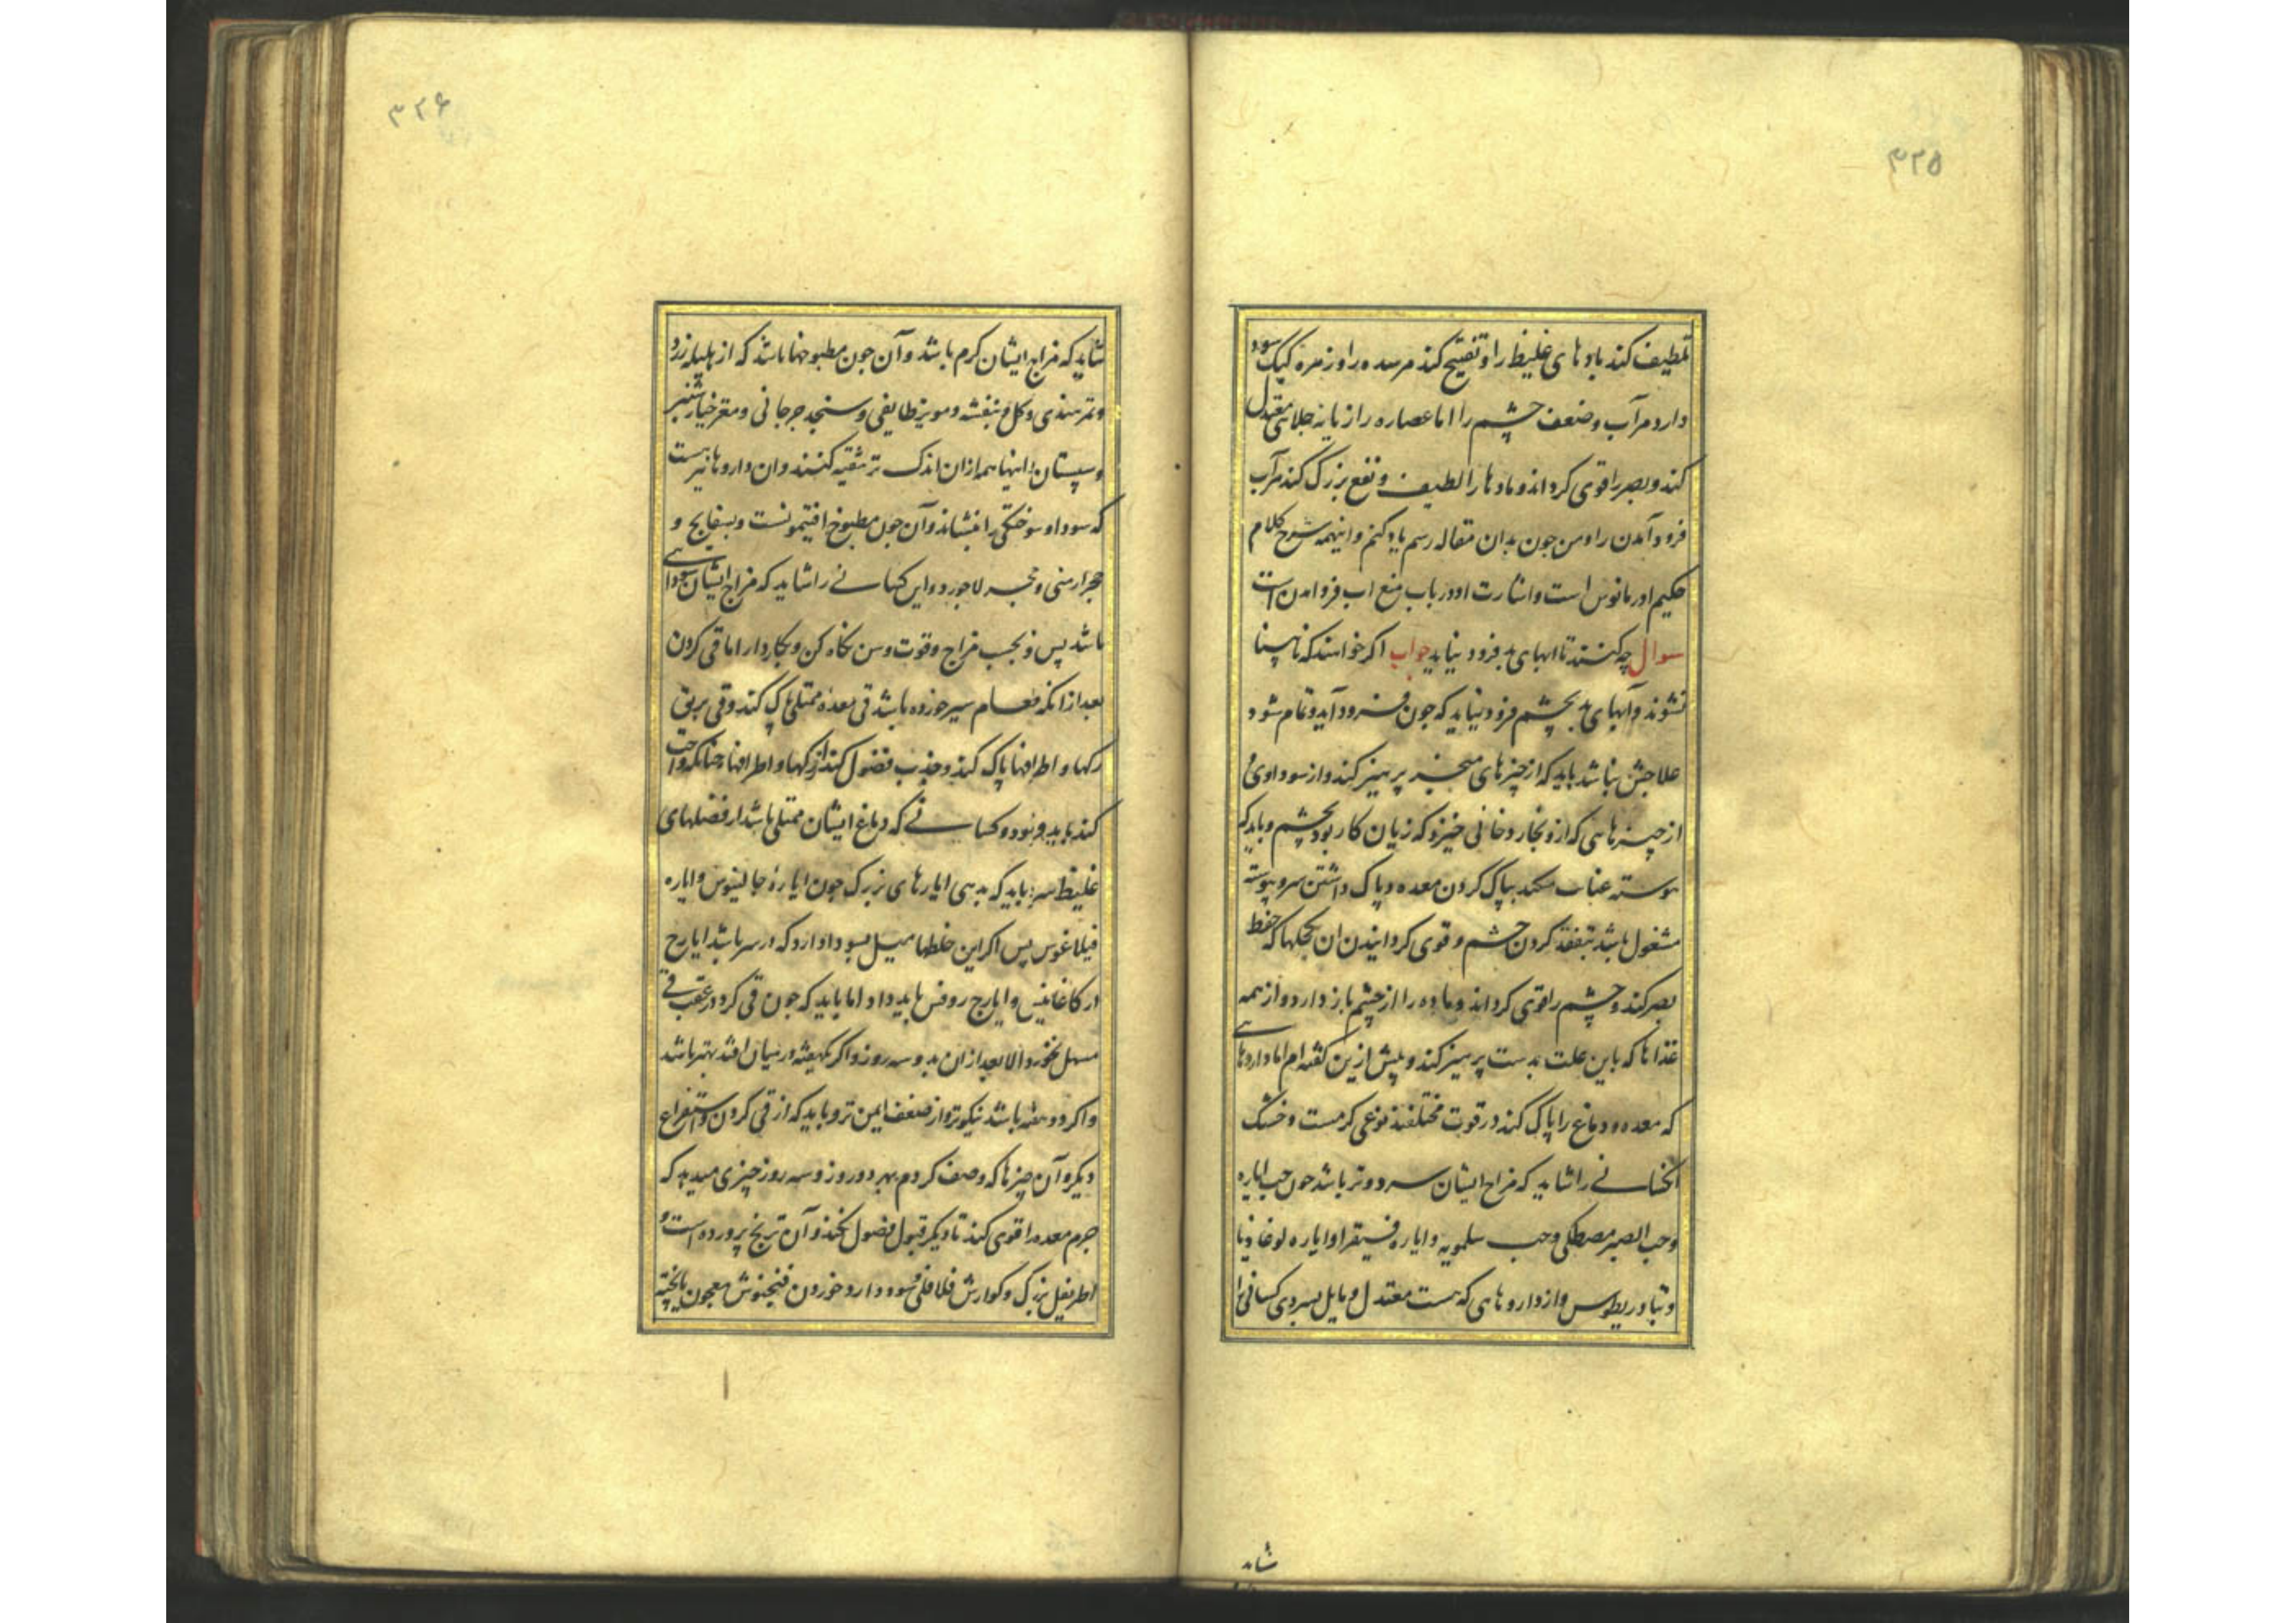 ۳۲۵
تلطیف کند بادهای غلیظ را و تفتیح کند مر سده را و زهره کبک سود
دارد مر آب و ضعف چشم را اما عصاره رازیانه جلائی معتدل
کند و بصر را قوی کرداند و مادها را لطیف و نفع بزرک کند مر آب
فرود آمدن را و من جون بدان مقاله رسم یاد کنم و اینهمه شرح کلام
حکیم اورمانوس است و اشارت او در باب منع اب فروامدن است
سوال چه کنند تا ابهای بد فرود نیاید جواب اکر خواهند که نابینا
نشوند و آبهای بد بچشم فرود نیاید که جون فرود آید و تمام شود
علاجش نباشد باید که از چیزهای مبخر پرهیز کند و از سوداوی و
از چیزهائی که ازو بخار دخانی خیزد که زیان کار بود بچشم و باید که
پیوسته عنایت کند بپاک کردن معده و پاک داشتن سر و پیوسته
مشغول باشد بتفقد کردن چشم و قوی کردانیدن ان بکحلها که حفظ
بصر کند و چشم را قوی کرداند و ماده را از چشم باز دارد و از همه
غذاها که باین علت بدست پرهیز کند و پیش ازین کفته ام اما داروهائی
که معده و دماغ را پاک کند در قوت مختلفند نوعی کرمست و خشک
انکسانی را شاید که مزاج ایشان سرد و تر باشد جون حب ایاره
و حب الصبر مصطکی و حب سلمویه و ایاره فیقرا و ایاره لوغاذیا
و تیادریطوس و از داروهایی که هست معتدل و مایل بسردی کسانی را
شاید
۳۲۶
شاید که مزاج ایشان کرم باشد و آن جون مطبوخها باشد که از هلیله زرد
و تمر هندی و کل و بنفشه و مویز طایفی و سنجد جرجانی و مغز خیارشنبر
و سپستان اینها همه ازان اندک تر تنقیه کنند و ان داروها نیز هست
که سودا و سوختکی را بنشاند و آن جون مطبوخ افتیمونست و بسفایج و
حجر ارمنی و حجر لاجورد و این کسانی را شاید که مزاج ایشان سوداسی
باشد پس بحسب مزاج و قوت و سن نکاه کن و بکار دار اما قی کردن
بعد از انکه طعام سیر خورده باشد قی معده ممتلی پاک کند و قی بریق
رکها و اطرافها پاک کند و جذب فضول کند از رکها و اطرافها چنانکه واجب
کند باید فرمود و کسانی که دماغ ایشان ممتلی باشد از فضلهای
غلیظ سرد باید که بدهی ایارهای بزرک جون ایاره جالینوس و ایاره
فیلاغوس پس اکر این خلطها میل بسودا دارد که در سر باشد ایارج
ارکاغانیس و ایارج روفس باید داد اما باید که جون قی کرد در عقب قی
مسهل نخورد الا بعد از ان بدو سه روز و اکر یکهفته در میان افتد بهتر باشد
و اکر دو هفته باشد نیکوتر و از ضعف ایمن تر و باید که از قی کردن و استفراغ
دیکر و آن چیزها که وصف کردم بهر دو روز و سه روز چیزی میدهد که
جرم معده را قوی کند تا دیکر قبول فضول نکند و آن ترنج پرورده است و
اطریفل بزرک و کوارش فلافلی و سود دارد خوردن فنجنوش معجون یا پخته